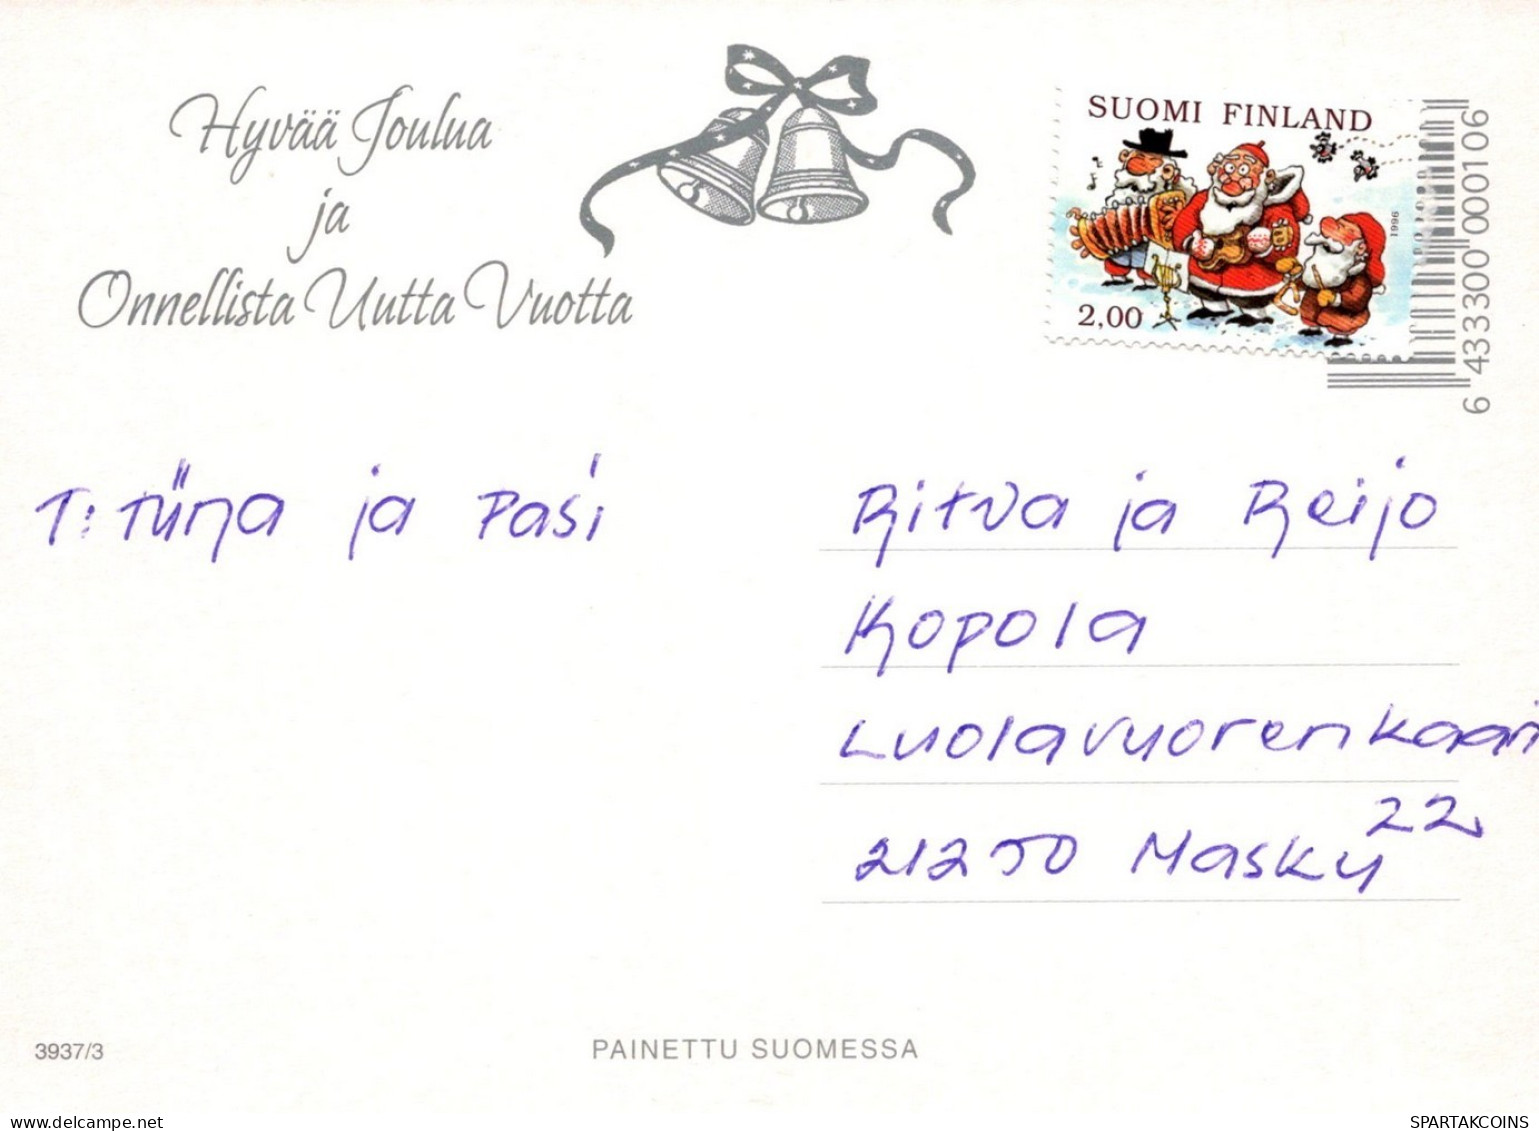 Hyvää Joulua
ja
Onnellista Uutta Vuotta
SUOMI FINLAND
1996
2,00
6 433300 000106
T: Tiina ja Pasi
Ritva ja Reijo
Kopola
Luolavuorenkaari
22
21250 Masku
3937/3
PAINETTU SUOMESSA
delcampe.net
SPARTAKCOINS